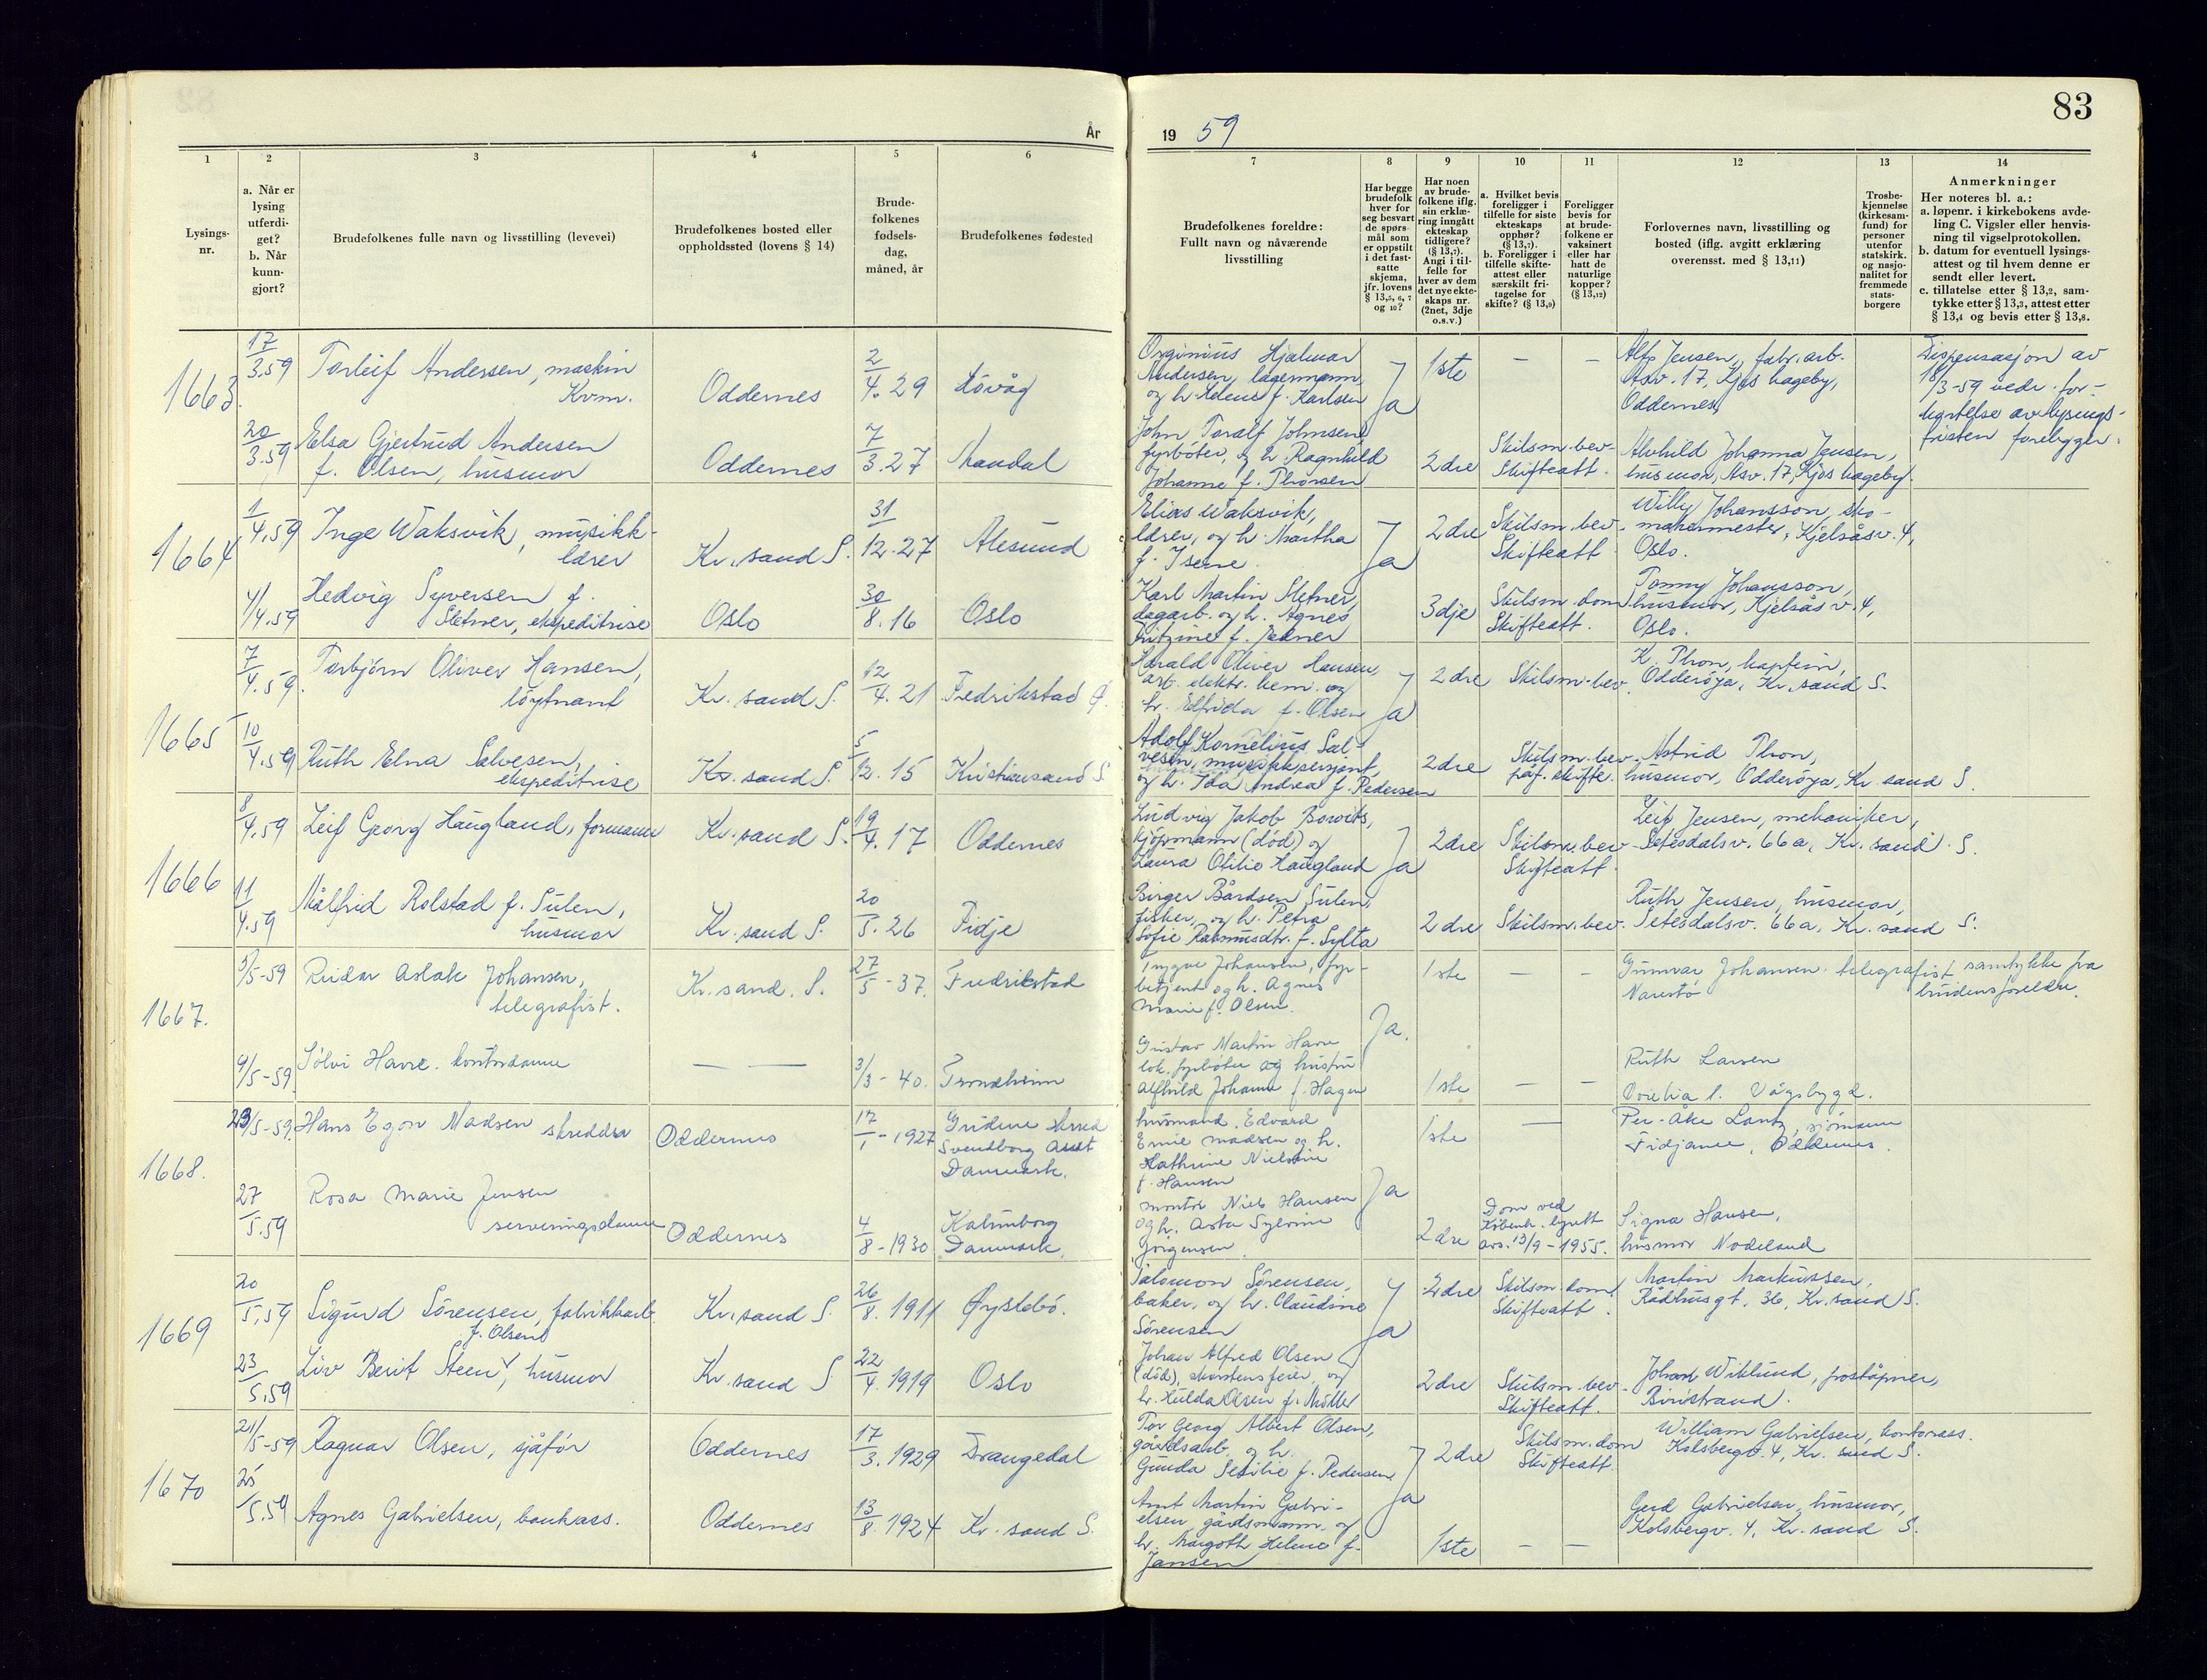 83
År
19 59
1
2
3
4
5
6
7
8
9
10
11
12
13
14
Lysings-
nr.
a. Når er
lysing
utferdi-
get?
b. Når
kunn-
gjort?
Brudefolkenes fulle navn og livsstilling (levevei)
Brudefolkenes bosted eller
oppholdssted (lovens § 14)
Brude-
folkenes
fødsels-
dag,
måned, år
Brudefolkenes fødested
Brudefolkenes foreldre:
Fullt navn og nåværende
livsstilling
Har begge
brudefolk
hver for
seg besvart
de spørs-
mål som
er oppstilt
i det fast-
satte
skjema,
jfr. lovens
§ 13,5, 6, 7
og 10?
Har noen
av brude-
folkene iflg.
sin erklæ-
ring inngått
ekteskap
tidligere?
(§ 13,7).
Angi i til-
felle for
hver av dem
det nye ekte-
skaps nr.
(2net, 3dje
o.s.v.)
a. Hvilket bevis
foreligger i
tilfelle for siste
ekteskaps
opphør?
(§ 13,7).
b. Foreligger i
tilfelle skifte-
attest eller
særskilt fri-
tagelse for
skifte? (§ 13,9)
Foreligger
bevis for
at brude-
folkene er
vaksinert
eller har
hatt de
naturlige
kopper?
(§ 13,12)
Forlovernes navn, livsstilling og
bosted (iflg. avgitt erklæring
overensst. med § 13,11)
Trosbe-
kjennelse
(kirkesam-
fund) for
personer
utenfor
statskirk.
og nasjo-
nalitet for
fremmede
stats-
borgere
Anmerkninger
Her noteres bl. a.:
a. løpenr. i kirkebokens avde-
ling C. Vigsler eller henvis-
ning til vigselprotokollen.
b. datum for eventuell lysings-
attest og til hvem denne er
sendt eller levert.
c. tillatelse etter § 13,2, sam-
tykke etter § 13,3, attest etter
§ 13,4 og bevis etter § 13,8.
1663.
17/3.59
Torleif Andersen, maskin
Kvm.
Oddernes
2/4.29
Hövåg
Orginius Hjalmar
Andersen, lagermann,
og h. Helene f. Karlsen
Ja
1ste
—
—
Alf Jensen, fabr.arb.
Asv. 17, Kjos hageby,
Oddernes
Dispensasjon av
18/3-59 vedr. for-
kortelse av lysings-
fristen foreligger.
20/3.59
Elsa Gjertrud Andersen
f. Olsen, husmor
Oddernes
7/3.27
Mandal
John Toralf Johnsen,
fyrböter, og h. Ragnhild
Johanne f. Thorsen
2dre
Skilsm.bev-
Skifteatt.
Alvhild Johanna Jensen,
husmor, Asv. 17, Kjos hageby.
1664
1/4.59
Inge Waksvik, musikk-
lærer
Kr.sand S.
31/12.27
Ålesund
Elias Waksvik,
lærer, og h. Martha
f. Isene.
Ja
2dre
Skilsm.bev.
Skifteatt.
Willy Johansson, sko-
makermester, Kjelsåsv. 4,
Oslo.
4/4.59
Hedvig Syversen f.
Sletner, ekspeditrise
Oslo
30/8.16
Oslo
Karl Martin Sletner,
dagarb. og h. Agnes
3dje
Skilsm.dom
Skifteatt.
Tonny Johansson,
husmor, Kjelsåsv. 4,
Oslo.
1665
7/4.59.
Torbjörn Oliver Hansen,
löytnant
Kr.sand S.
12/4.21
Fredrikstad Ø.
Harald Oliver Hansen,
arb. elektr. kem. og
h. Elfrida f. Olsen
Ja
2dre
Skilsm.bev.
K. Thon, kaptein,
Odderöya, Kr.sand S.
10/4.59
Ruth Elna Salvesen,
ekspeditrise
Kr.sand S.
5/12.15
Kristiansand S.
Adolf Kornelius Sal-
vesen, musikksersjant,
og h. Ida Andrea f. Pedersen
2dre
Skilsm.bev.
påg. skifte.
Astrid Thon,
husmor, Odderöya, Kr.sand S.
1666
8/4.59
Leif Georg Haugland, formann
Kr.sand S.
19/4.17
Oddernes
Ludvig Jakob Bowits,
kjöpmann (död) og
Laura Otilie Haugland
Ja
2dre
Skilsm.bev-
Skifteatt.
Leif Jensen, mekaniker,
Setesdalsv. 66a, Kr.sand S.
11/4.59
Målfrid Rolstad f. Sulen,
husmor
Kr.sand S.
20/5.26
Fidje
Birger Bårdsen Sulen,
fisker, og h. Petra
Sofie Rasmusdtr. f. Sylta
2dre
Skilsm.bev.
Ruth Jensen, husmor,
Setesdalsv. 66a, Kr.sand S.
1667.
5/5-59
Reidar Aslak Johansen,
telegrafist.
Kr.sand. S.
27/5-37.
Fredrikstad
Trygve Johansen, fyr-
betjent og h. Agnes
Marie f. Olsen.
Ja.
1ste
—
—
Gunnar Johansen. telegrafist
Narestö
samtykke fra
brudens foreldre.
9/5-59.
Sölvi Havre. kontordame
— —
3/3-40.
Trondheim
Gustav Martin Havre
lok. fyrböter og hustru
Alfhild Johanne f. Hagen
1ste
—
—
Ruth Larsen
Vågsbygd.
1668.
23/5-59.
Hans Egon Madsen skredder
Oddernes
17/1-1927
Svendborg Amt
Danmark.
husmand. Edvard
Emil Madsen og h.
Kathrine Nielsine
f. Hansen
Ja
1ste
—
Per-Åke Lantz, sjömann
Fidjane, Oddernes.
27/5.59
Rosa Marie Jensen
serveringsdame
Oddernes
4/8-1930
Kalunborg
Danmark.
montör Niels Hansen
og h. Asta Sylvine
Jörgensen.
2dre
Dom ved
Københ. byrett
avs. 13/9-1955.
Signe Hansen,
husmor Nodeland
1669
20/5.59
Sigurd Sörensen, fabrikkarb.
Kr.sand S.
26/8.1911
Øyslebö.
Salomon Sörensen,
baker, og h. Claudine
Sörensen
Ja
2dre
Skilsm.dom
Skifteatt.
Martin Markussen,
Rådhusgt. 36, Kr.sand S.
f. Olsen
23/5.59
Liv Berit Steen, husmor
Kr.sand S
22/4.1919
Oslo
Johan Alfred Olsen
(död), skorstensfeier, og
h. Hulda Olsen f. Möller
2dre
Skilsm.bev-
Skifteatt.
Johan Wiklund, poståpner,
Biristrand.
1670
21/5-59
Ragnar Olsen, sjåför
Oddernes
17/3.1929
Drangedal
Tor Georg Albert Olsen,
gårdsarb. og h.
Gunda Sesilie f. Pedersen
Ja
2dre
Skilsm.dom
Skifteatt.
William Gabrielsen, kontorass.
Kolsbergv. 4, Kr.sand S.
25/5.59
Agnes Gabrielsen, bankass.
Oddernes
13/8.1924
Kr.sand S.
Arnt Martin Gabri-
elsen, gårdsmann, og
h. Margoth Helene f.
Jansen
1ste
—
—
Gerd Gabrielsen, husmor,
Kolsbergv. 4, Kr.sand S.